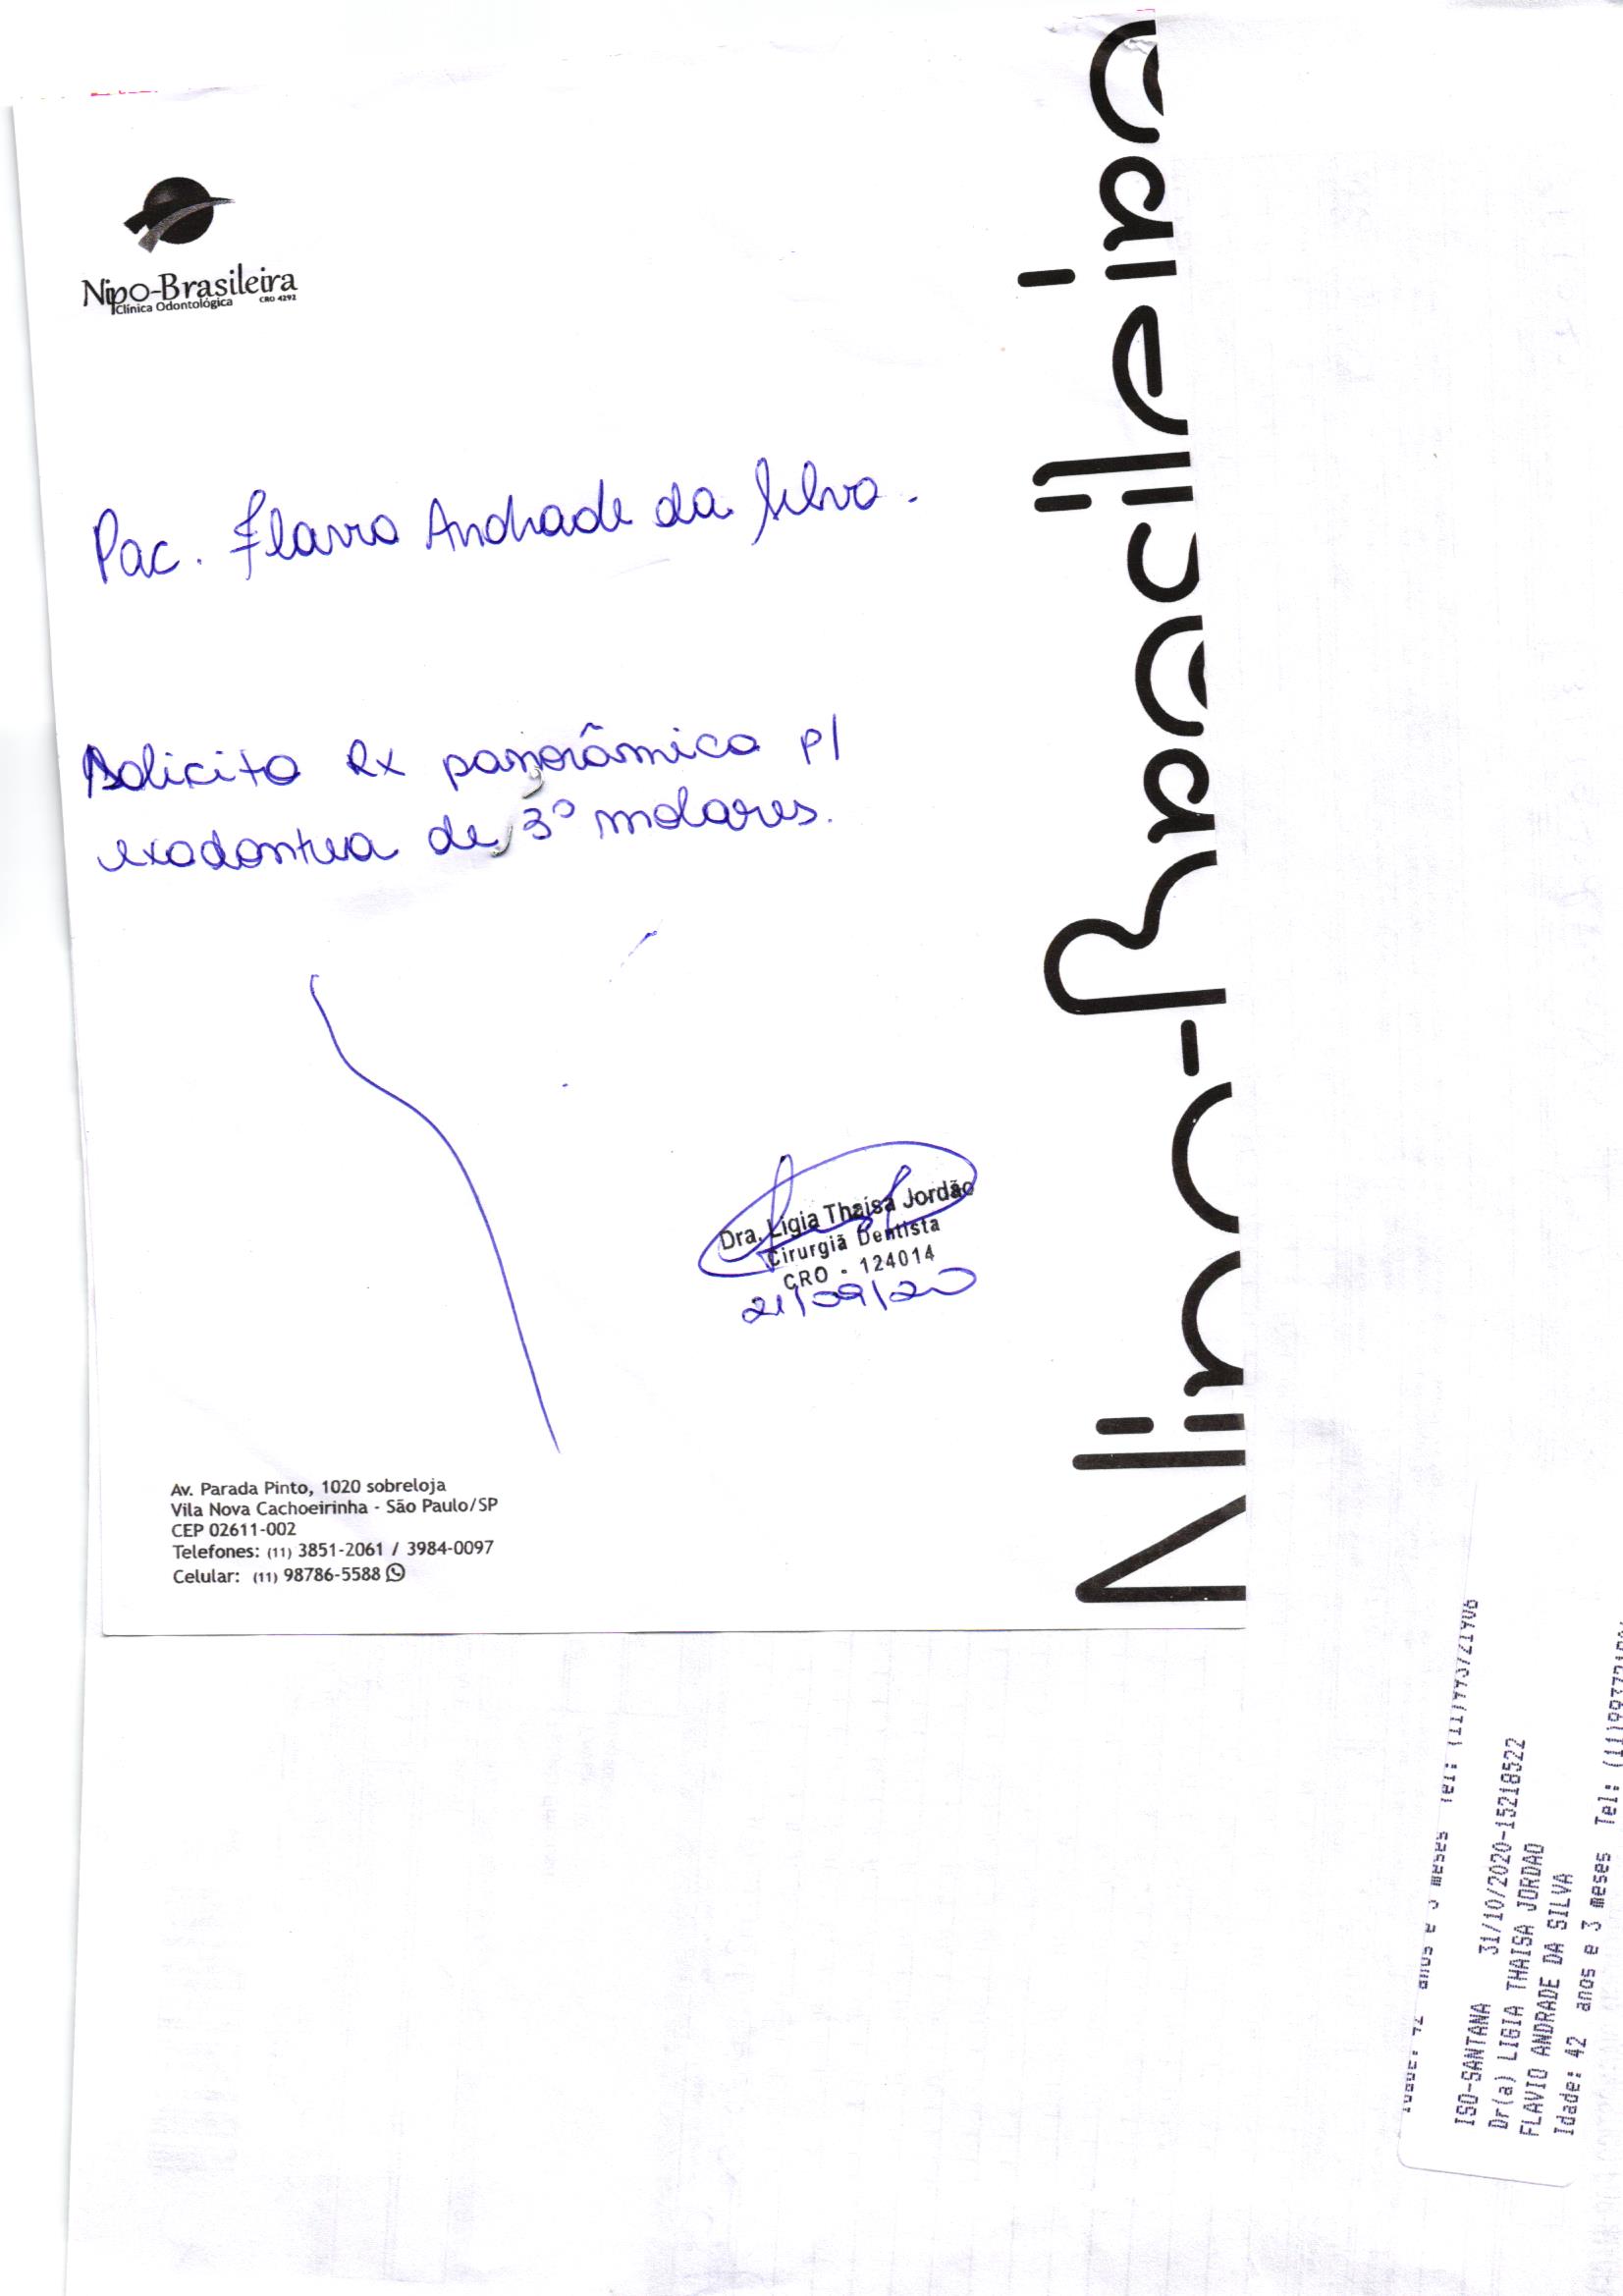 Nipo-Brasileira
Clínica Odontológica CRO 4292
Pac. Flavio Andrade da Silva.
Solicito Rx panorâmica p/
exodontia de 3º molares.
Dra. Ligia Thaisa Jordão
Cirurgiã Dentista
CRO - 124014
21/09/20
Av. Parada Pinto, 1020 sobreloja
Vila Nova Cachoeirinha - São Paulo/SP
CEP 02611-002
Telefones: (11) 3851-2061 / 3984-0097
Celular: (11) 98786-5588
Nipo-Brasileira
anos e 3 meses Tel: (11)993721906
ISO-SANTANA 31/10/2020-15218522
Dr(a) LIGIA THAISA JORDAO
FLAVIO ANDRADE DA SILVA
Idade: 42 anos e 3 meses Tel: